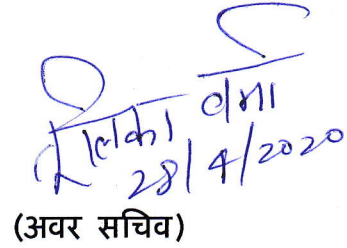 तूलिका वर्मा
28/4/2020
(अवर सचिव)